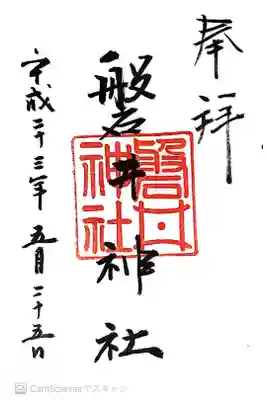 奉拝
磐井神社
磐井
神社
平成二十三年五月二十五日
CamScannerでスキャン